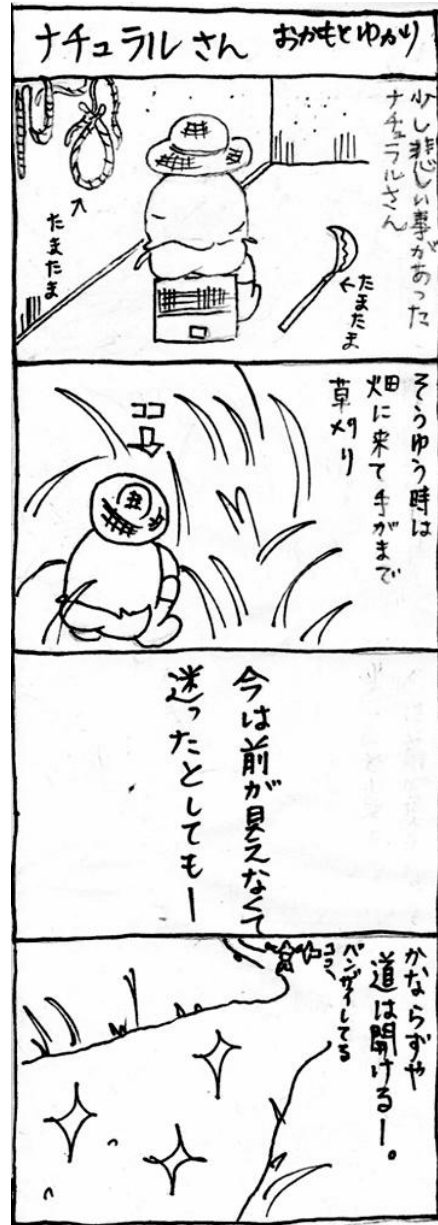 ナチュラルさん
おかもとゆかり
少し悲しい事があった
ナチュラルさん
たまたま
たまたま
そうゆう時は
畑に来て手がまで
草刈り
ココ
今は前が見えなくて
迷ったとしてもー
かならずや
道は開けるー。
バンザイしてる
ココ